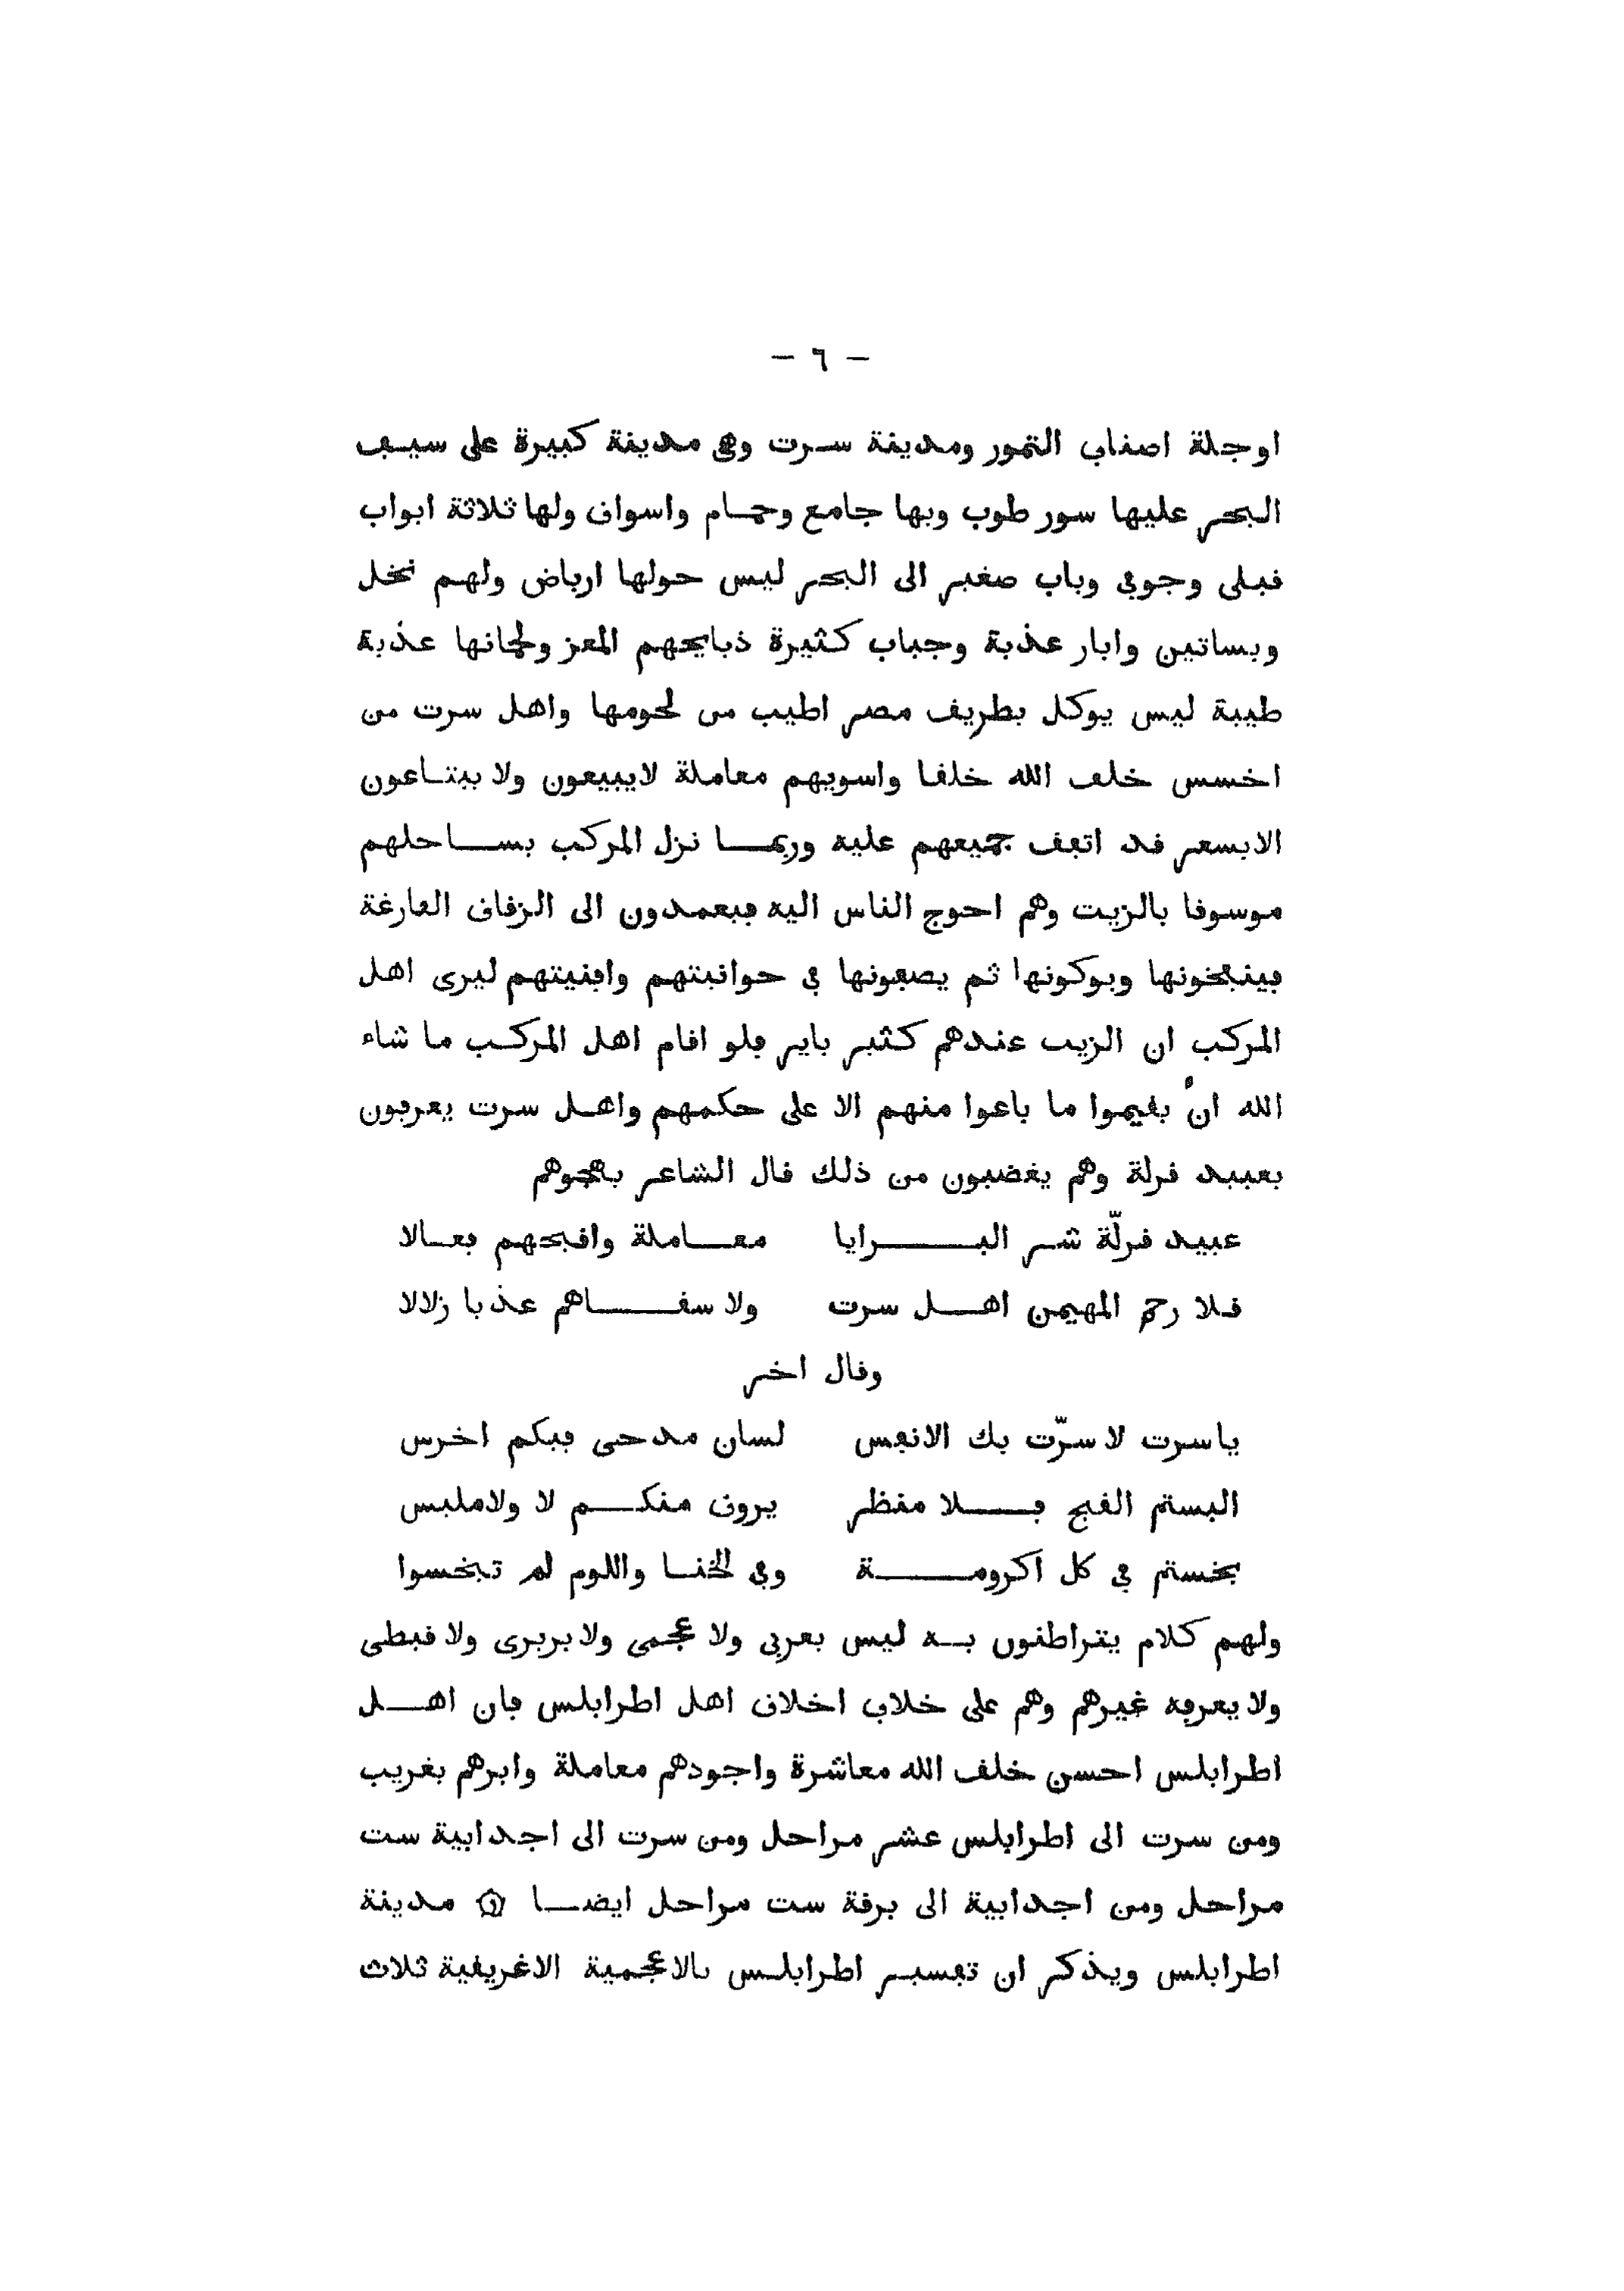 — ٦ —
اوجلة اصناف التمور ومدينة سرت وهى مدينة كبيرة على سيف
البحر عليها سور طوب وبها جامع وحمام واسواق ولها ثلاثة ابواب
قبلى وجوفى وباب صغير الى البحر ليس حولها ارباض ولهم نخل
وبساتين وابار عذبة وجباب كثيرة ذبايحهم المعز ولحمانها عذبة
طيبة ليس يوكل بطريق مصر اطيب من لحومها واهل سرت من
اخسس خلق الله خلقا واسويهم معاملة لايبيعون ولا يبتاعون
الابسعر قد اتفق جميعهم عليه وربما نزل المركب بساحلهم
موسوقا بالزيت وهم احوج الناس اليه فيعمدون الى الزقاق الفارغة
فينفخونها ويوكونها ثم يصفونها فى حوانيتهم وافنيتهم ليرى اهل
المركب ان الزيت عندهم كثير باير فلو اقام اهل المركب ما شاء
الله ان يقيموا ما باعوا منهم الا على حكمهم واهل سرت يعرفون
بعبيد قرلة وهم يغضبون من ذلك قال الشاعر يهجوهم
عبيد قرلّة شر البرايا معاملة واقبحهم فعالا
فلا رحم المهيمن اهل سرت ولا سقاهم عذبا زلالا
وقال اخر
ياسرت لا سرّت بك الانفس لسان مدحى فيكم اخرس
البستم القبح فلا منظر يروق منكم لا ولاملبس
بخستم فى كل اكرومة وفى الخنا واللوم لم تبخسوا
ولهم كلام يتراطنون به ليس بعربى ولا عجمى ولا بربرى ولا قبطى
ولا يعرفه غيرهم وهم على خلاف اخلاق اهل اطرابلس فان اهل
اطرابلس احسن خلق الله معاشرة واجودهم معاملة وابرهم بغريب
ومن سرت الى اطرابلس عشر مراحل ومن سرت الى اجدابية ست
مراحل ومن اجدابية الى برقة ست مراحل ايضا ۞ مدينة
اطرابلس ويذكر ان تفسير اطرابلس بالاعجمية الاغريقية ثلاث